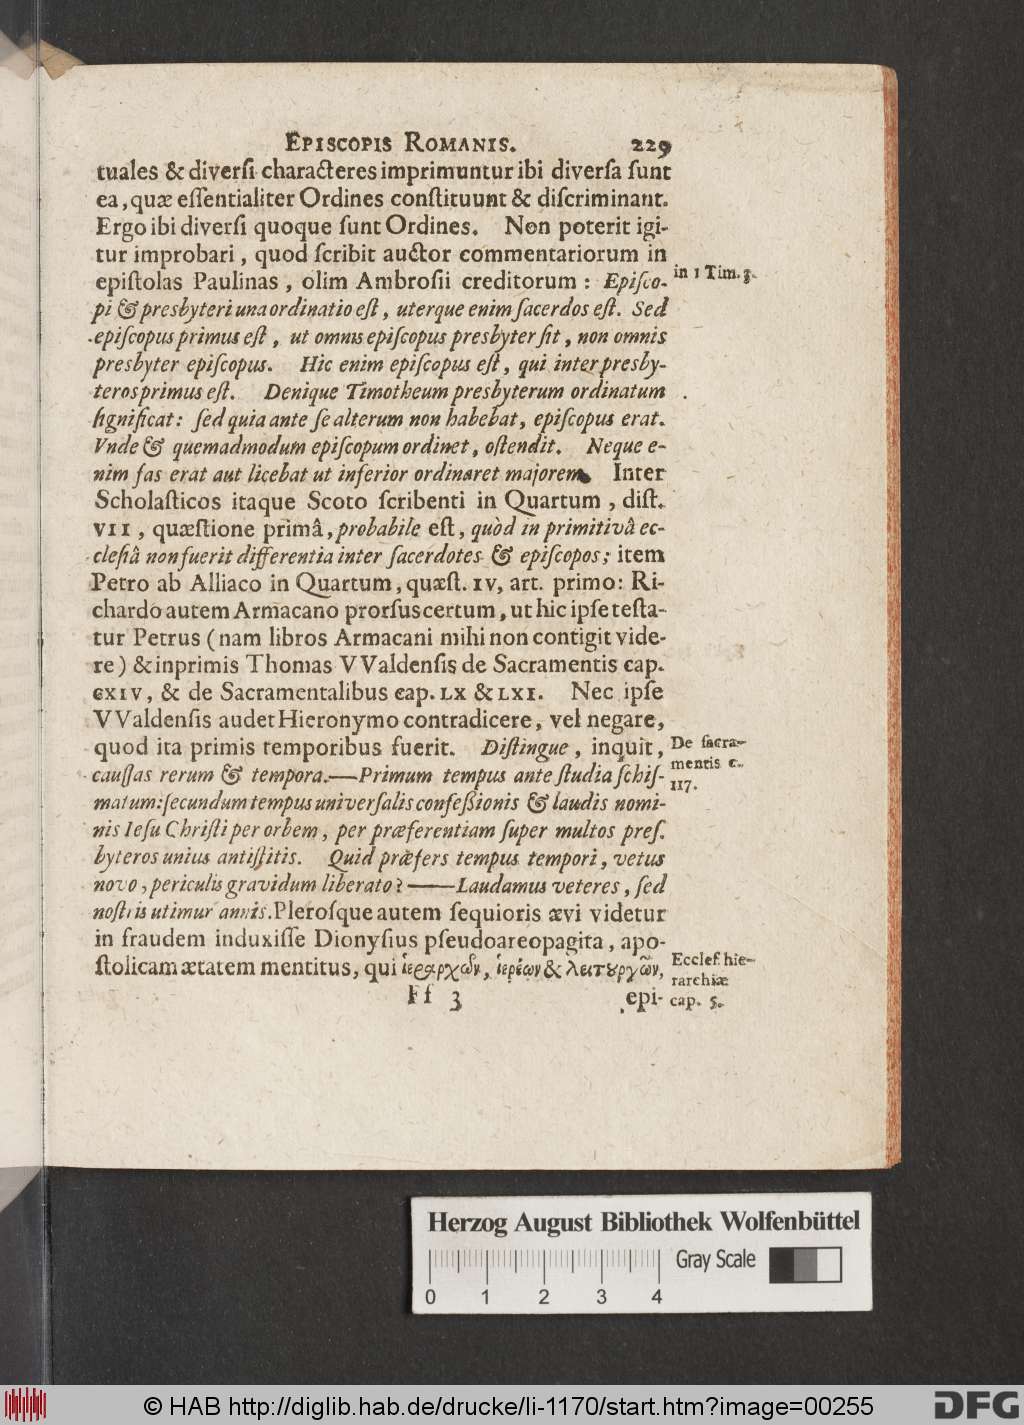 EPISCOPIS ROMANIS. 229
tuales & diverſi characteres imprimuntur ibi diverſa ſunt
ea, quæ eſſentialiter Ordines conſtituunt & diſcriminant.
Ergo ibi diverſi quoque ſunt Ordines. Non poterit igi-
tur improbari, quod ſcribit auctor commentariorum in
epiſtolas Paulinas, olim Ambroſii creditorum: Epiſco-
in 1 Tim. 3.
pi & presbyteri una ordinatio eſt, uterque enim ſacerdos eſt. Sed
epiſcopus primus eſt, ut omnis epiſcopus presbyter ſit, non omnis
presbyter epiſcopus. Hic enim epiſcopus eſt, qui inter presby-
teros primus eſt. Denique Timotheum presbyterum ordinatum
ſignificat: ſed quia ante ſe alterum non habebat, epiſcopus erat.
Vnde & quemadmodum epiſcopum ordinet, oſtendit. Neque e-
nim fas erat aut licebat ut inferior ordinaret majorem. Inter
Scholaſticos itaque Scoto ſcribenti in Quartum, diſt.
VII, quæſtione primâ, probabile eſt, quòd in primitivâ ec-
cleſiâ non fuerit differentia inter ſacerdotes & epiſcopos; item
Petro ab Alliaco in Quartum, quæſt. IV, art. primo: Ri-
chardo autem Armacano prorſus certum, ut hic ipſe teſta-
tur Petrus (nam libros Armacani mihi non contigit vide-
re) & inprimis Thomas VValdenſis de Sacramentis cap.
CXIV, & de Sacramentalibus cap. LX & LXI. Nec ipſe
VValdenſis audet Hieronymo contradicere, vel negare,
quod ita primis temporibus fuerit. Diſtingue, inquit,
De ſacra-
mentis c.
117.
cauſſas rerum & tempora.—Primum tempus ante ſtudia ſchiſ-
matum: ſecundum tempus univerſalis confeßionis & laudis nomi-
nis Ieſu Chriſti per orbem, per præferentiam ſuper multos preſ.
byteros unius antiſtitis. Quid præfers tempus tempori, vetus
novo, periculis gravidum liberato?——Laudamus veteres, ſed
noſtris utimur annis. Pleroſque autem ſequioris ævi videtur
in fraudem induxiſſe Dionyſius pſeudoareopagita, apo-
ſtolicam ætatem mentitus, qui ἱεραρχῶν, ἱερέων & λειτȣργῶν,
Eccleſ. hie-
rarchiæ
cap. 5.
Ff 3 epi-
Herzog August Bibliothek Wolfenbüttel
Gray Scale
0 1 2 3 4
© HAB http://diglib.hab.de/drucke/li-1170/start.htm?image=00255
DFG